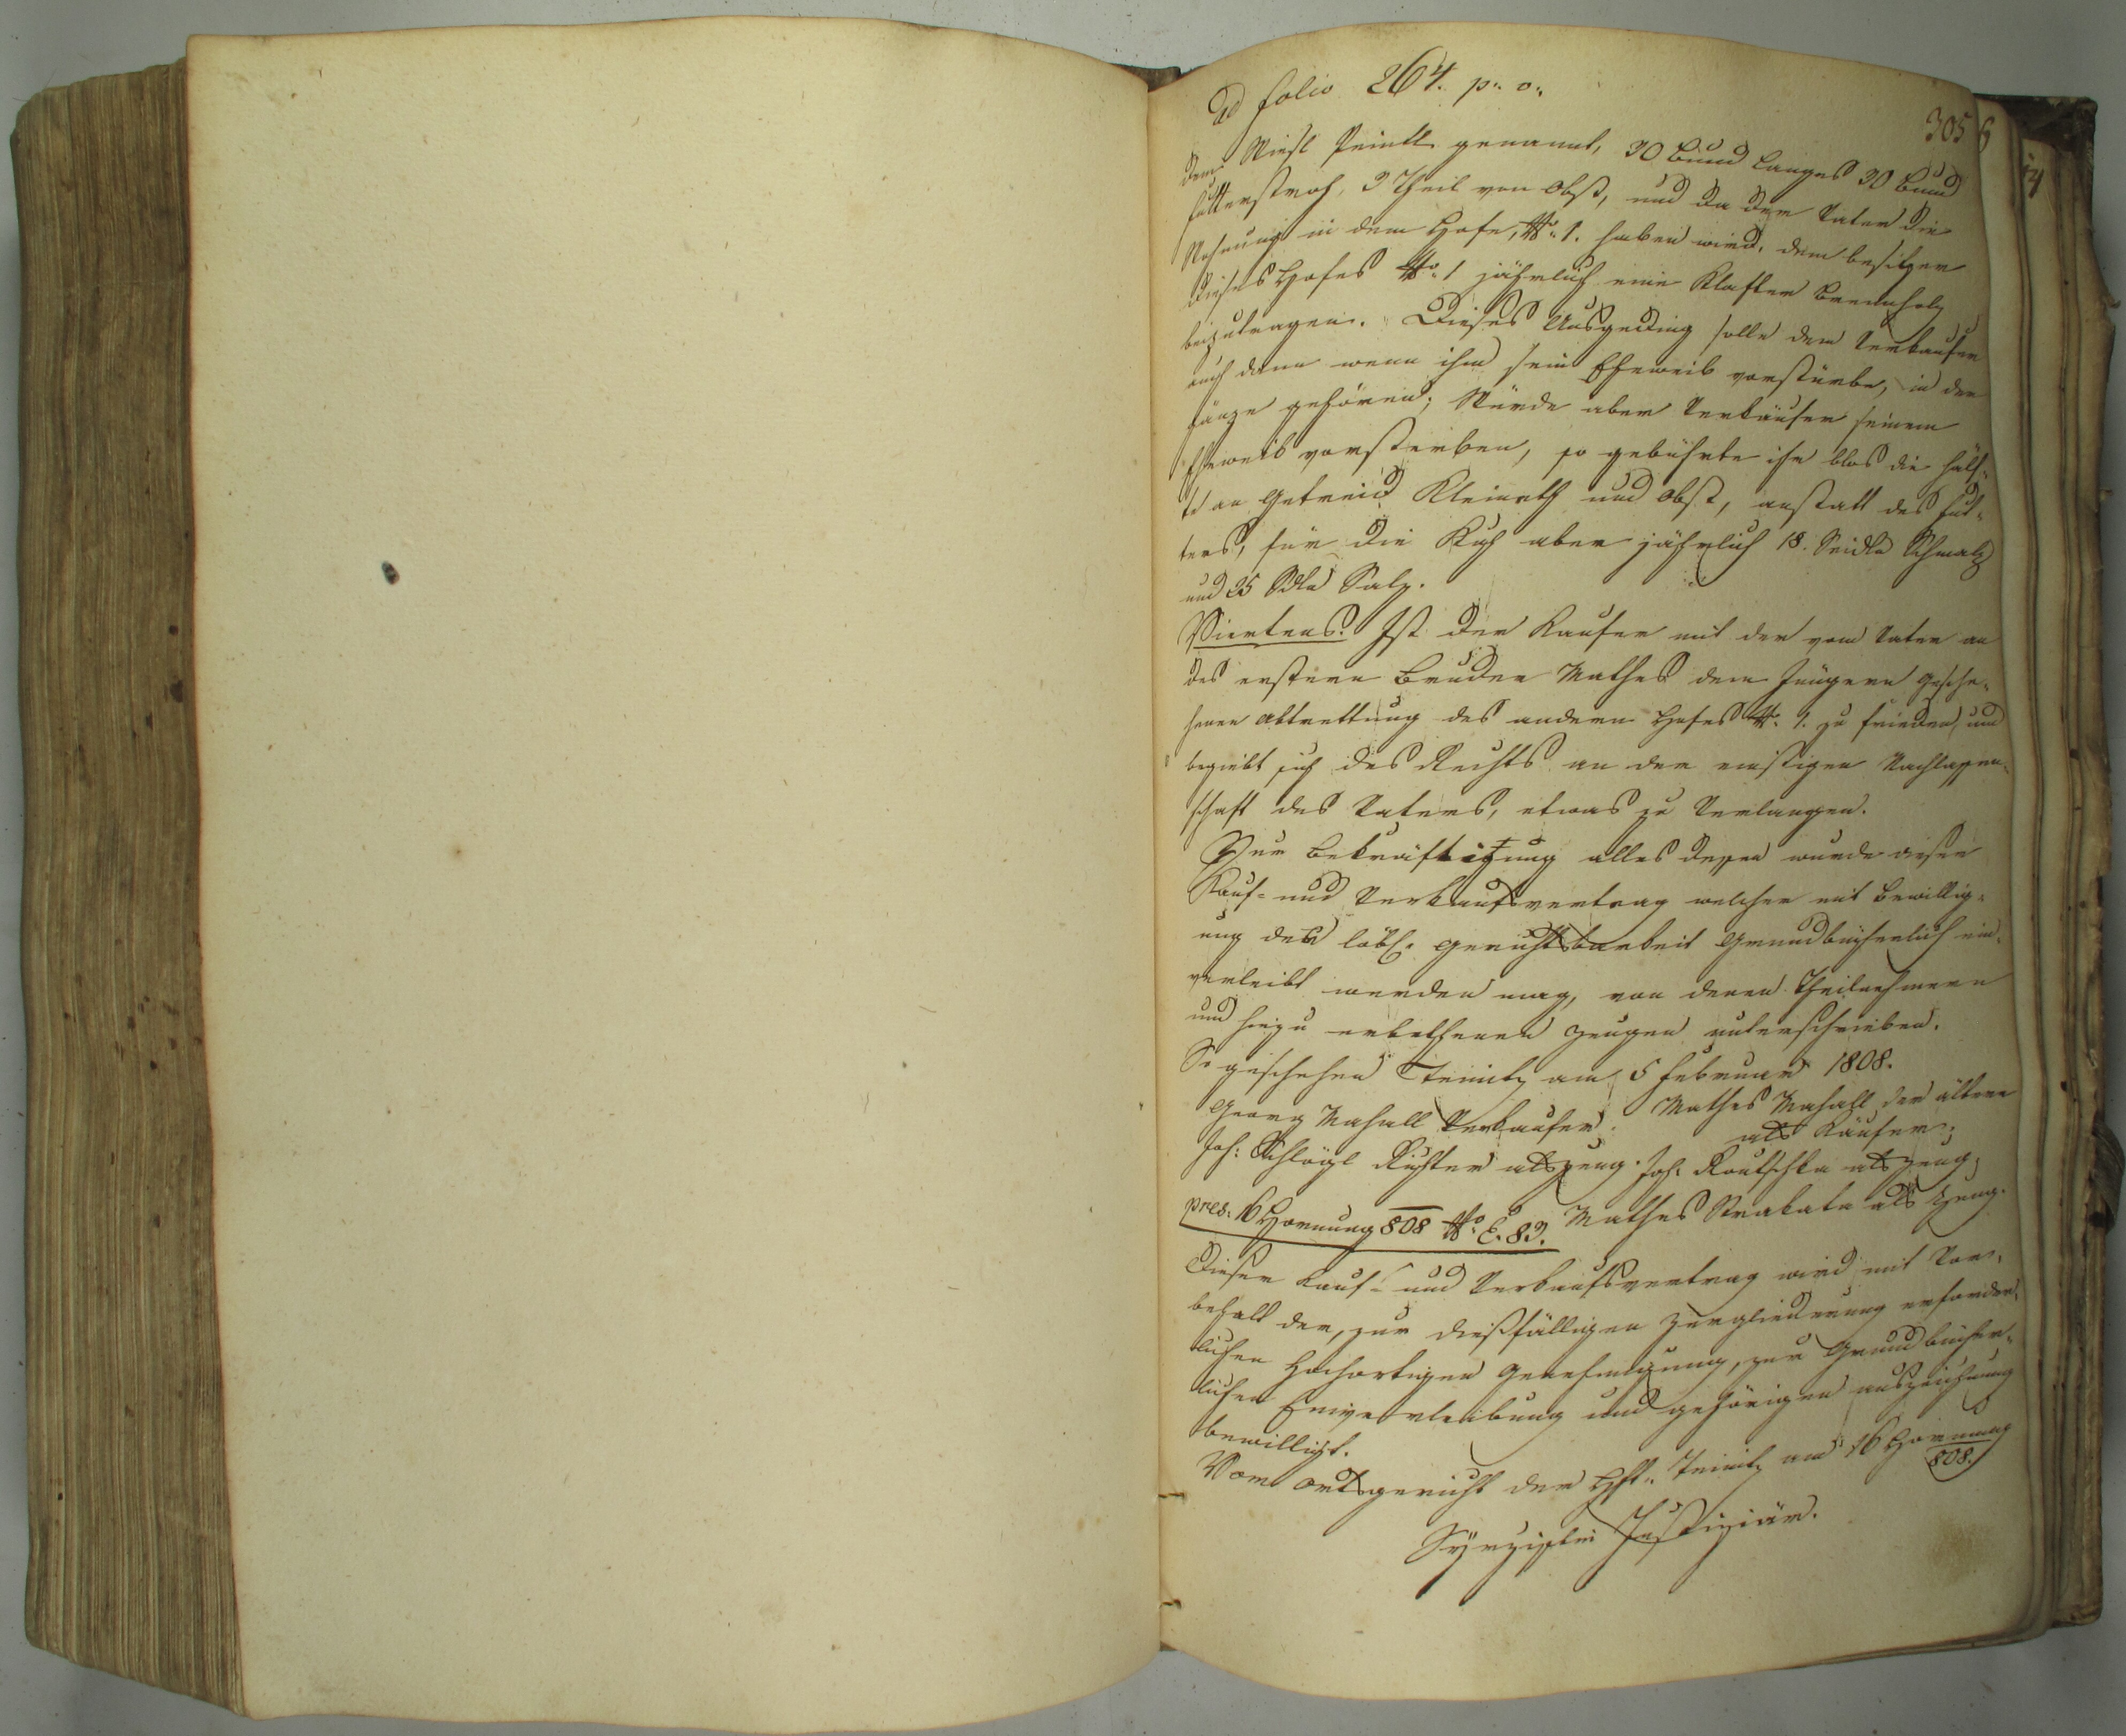 ad folio 264. p. o.
305
dem Wiesl Peintl genannt, 30 Bund langes 30 Bund
Futterstroh, 3 Theil von Obst, und da der Vater die
Wohnung in dem Hofe, No. 1. haben wird, dem besitzer
dieses Hofes No. 1 jährlich eine Klafter Brennholz
beizutragen. Dieses Ausgeding solle dem Verkaufer
auch dann wenn ihm sein Eheweib vorstürbe, in der
gänze gehören; Würde aber Verkäufer seinem
Eheweib vorsterben, so gebührte ihr blos die Hälf-
te an Getreid Kleinrath und Obst, anstatt des Fut-
ters, für die Kuh aber jährlich 18. Seidln Schmalz
und 25 Sdln Salz.
Viertens. Ist der Kaufer mit der vom Vater an
des erstern Bruder Mathes dem Jüngern gesche-
henen Abtrettung des andern Hofes No. 1. zu frieden, und
begiebt sich des Rechts an der einstigen Nachlassen-
schaft des Vaters, etwas zu verlangen.
Zur Bekräftigung alles dessen wurde dieser
Kauf- und Verkaufsvertrag welcher mit Bewillig-
ung der löbl. Gerichtsbarkeit Grundbücherlich ein-
verleibt werden mag, von denen Theilnehmern
und hiezu erbethenen Zeugen unterschrieben.
So geschehen Teinitz am 5 Februar 1808.
Georg Mahall Verkaufer. Mathes Mahall der ältere
als Käufer;
Joh: Schlögl Richter als Zeug. Joh: Koutschka als Zeug;
pres: 16 Hornung 808 No. E. 83. Mathes Strakata als Zeug.
Dieser Kauf- und Verkaufsvertrag wird mit Vor-
behalt der, zur dießfälligen Zergliederung erforder-
lichen Hochortigen Genehmigung, zur Grundbücher-
lichen Einverleibung und gehörigen auszeichnung
bewilligt.
Vom Ortsgericht der Hft. Teinitz am 16 Hornung
808.
Justiziär.